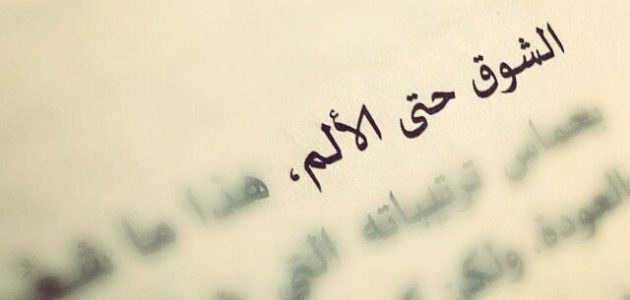 الشوق حتى الألم، هذا ما
بحماس ترتيباته التي
العودة ولكن